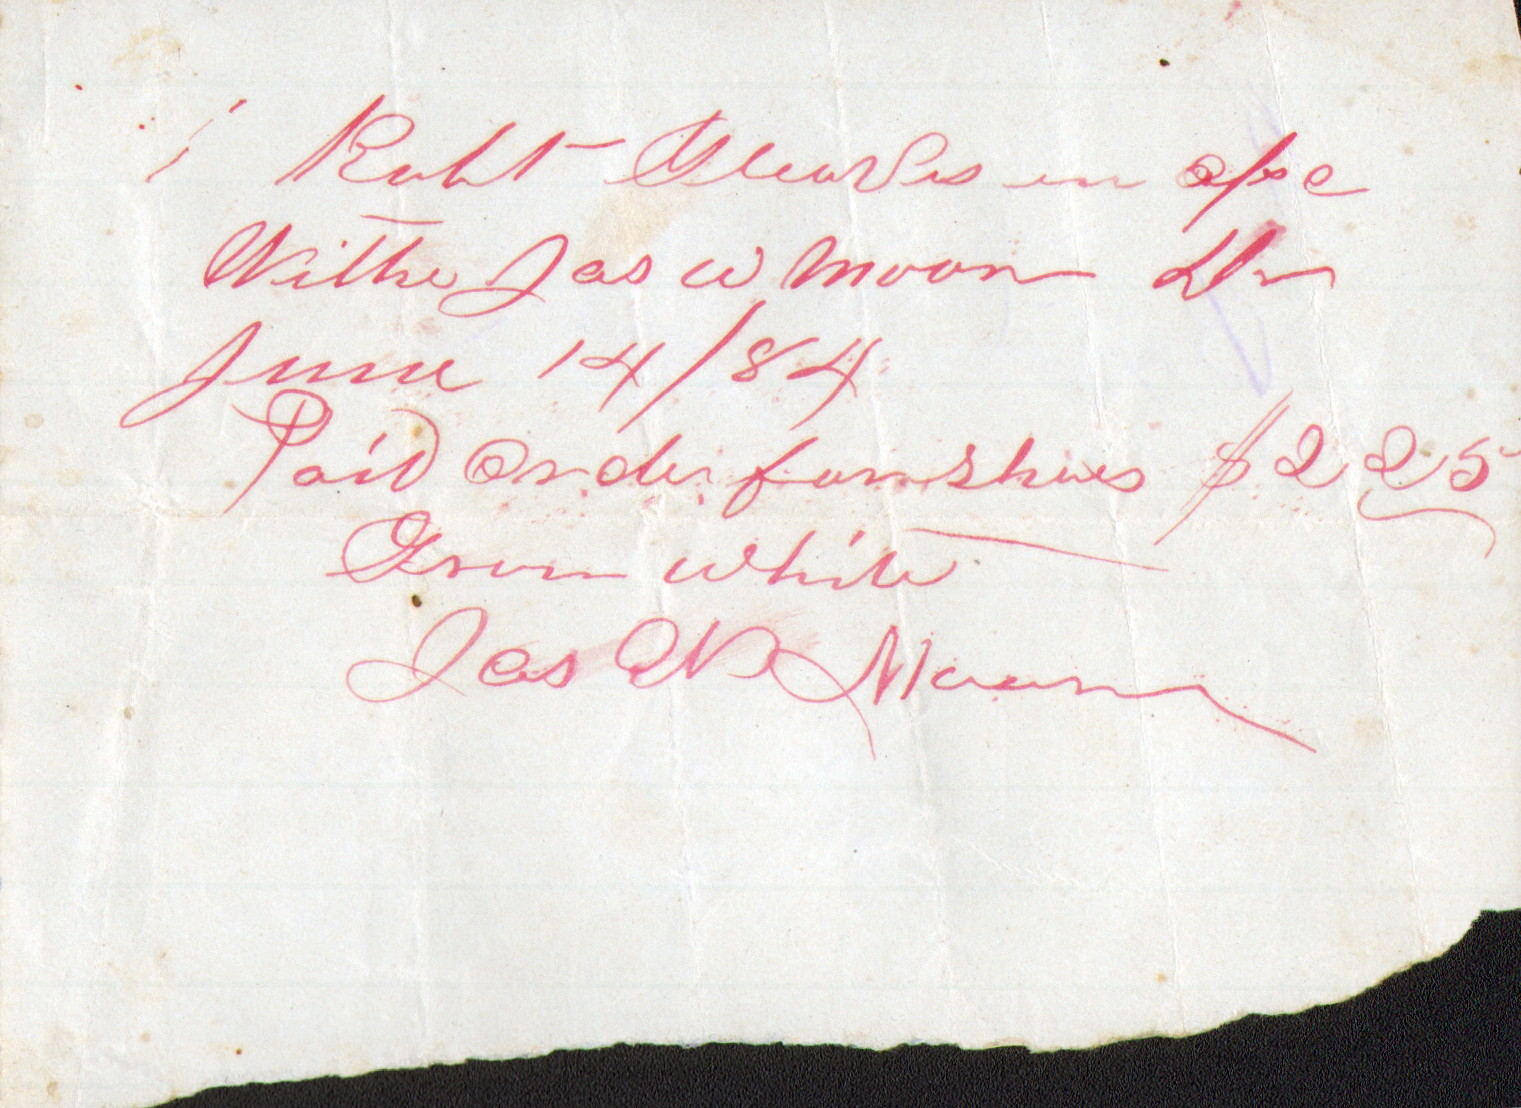 Robt Gleaves in a/c
Withe Jas W Moon Dr
June 14/84
Paid order for Shoes $2 25
From White
Jas W Moon